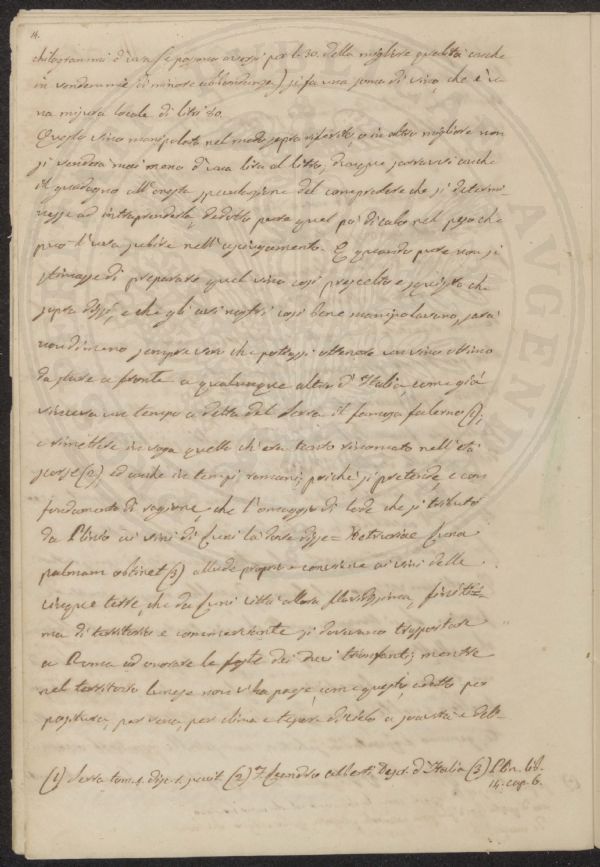 14.
chilogrammi d'uva (e possono aversi per L. 30. della migliore qualità anche
in vendemmie di minore abbondanza), si fa una soma di vino, che è u
na misura locale di litri 80.
Questo vino manipolato nel modo sopra riferito, o in altro migliore non
si venderà mai meno d'una lira al litro, dunque saravvi anche
il guadagno all'onesta speculazione del compratore che si determi
nasse ad intraprenderla, dedotto pure quel po' di calo nel peso che
può l'uva subire nell'asciugamento. E quando pure non si
stimasse di preparare quel vino così prescelto e squisito che
sopra dissi, e che gli avi nostri così bene manipolavano, sarà
nondimeno sempre vero che potrassi ottenere un vino ottimo
da stare a fronte a qualunque altro d'Italia, come già
vinceva un tempo a detta del Serra il famoso falerno (1);
e rimettere in voga quello ch'era tanto rinomato nell'età
scorse (2) ed anche in tempi romani; poichè si pretende, e con
fondamento di ragione, che l'omaggio di lode che si tributò
da Plinio ai vini di Luni là dove disse = Hetruriae Luna
palmam obtinet (3) allude proprio e conviene ai vini delle
cinque terre, che da Luni città allora floridissima, finitti=
ma di territorio e commerciante si dovevano trasportare
a Roma ad onorare le feste dei duci trionfanti; mentre
nel territorio lunese non v'ha paese, come questo, adatto per
postura, per vena, per clima e tepore di cielo a
(1) Serra tom. 4. disc. 1. (2) F. Leandro Alberti, Descr. d'Italia (3) Plin. lib.
14. cap. 6.